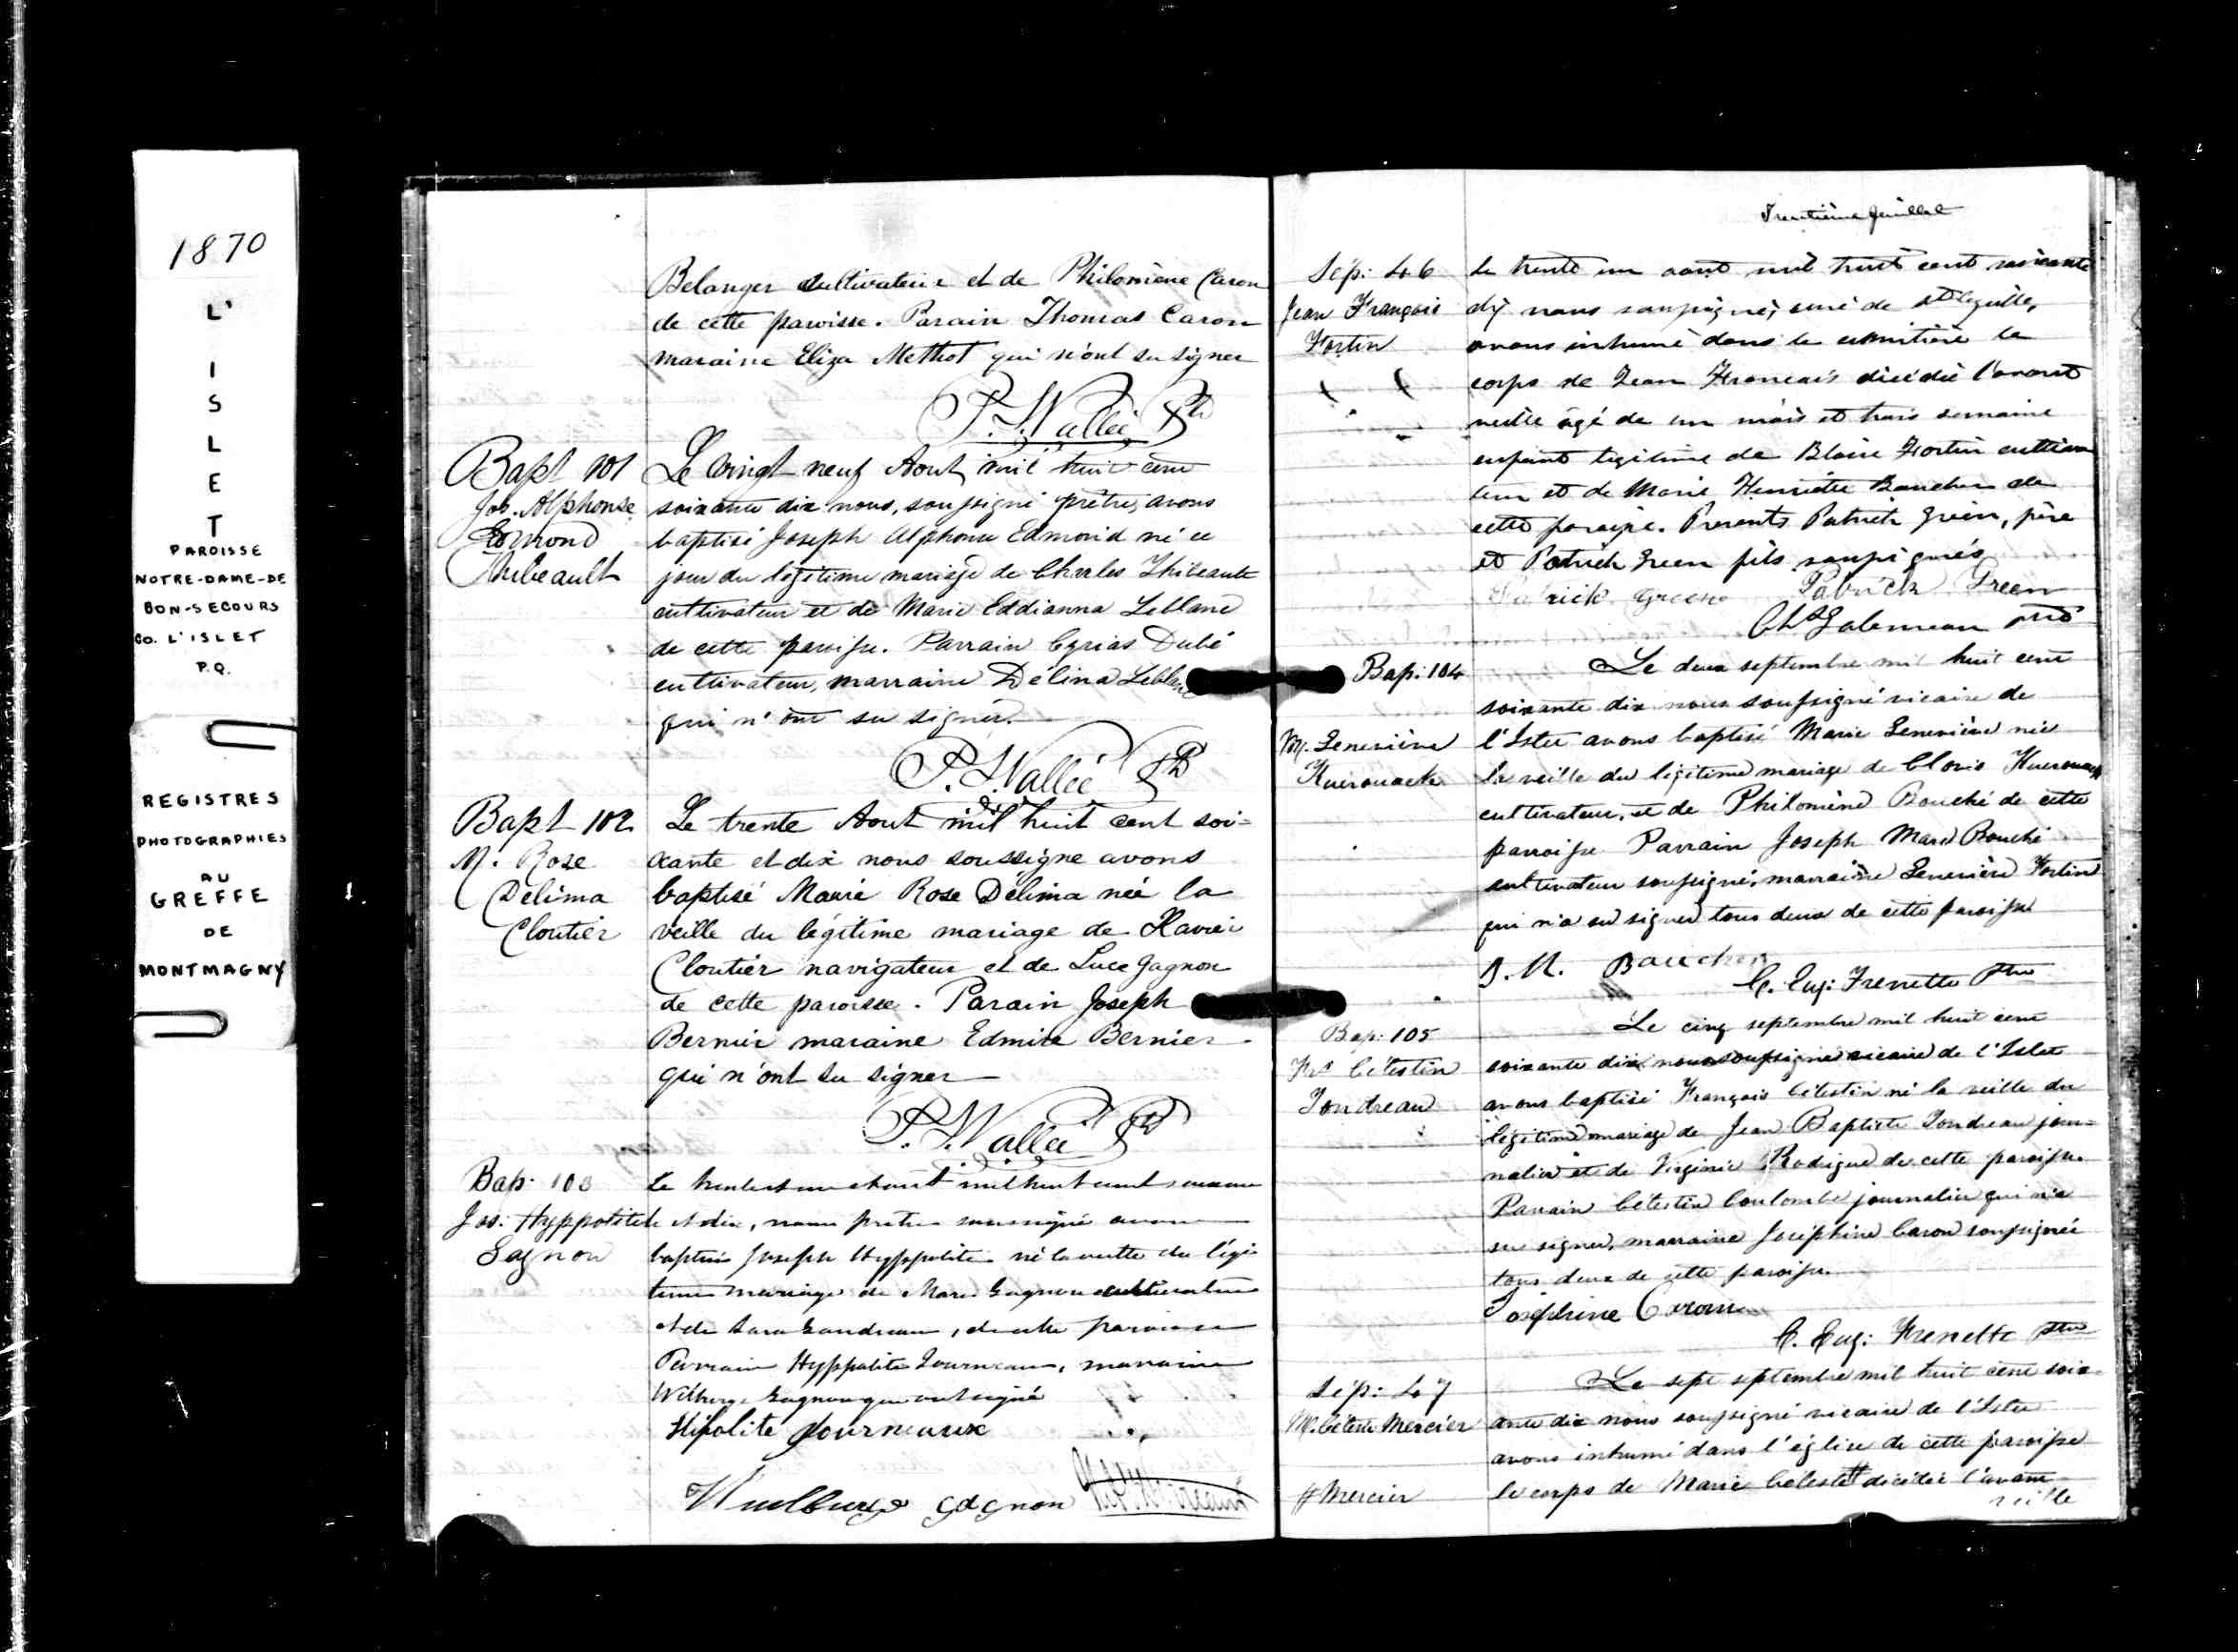 1870
L'
I
S
L
E
T
PAROISSE
NOTRE-DAME-DE
BON-SECOURS
Co. L'ISLET
P.Q.
REGISTRES
PHOTOGRAPHIES
AU
GREFFE
DE
MONTMAGNY
Belanger cultivateur et de Philomène Caron
de cette paroisse. Parain Thomas Caron
maraine Eliza Methot qui n'ont su signer
P. J. Vallée Ptr
Bapt 101
Jos. Alphonse
Edmond
Thibeault
Le vingt neuf Aout mil huit cent
soixante dix nous, soussigné prêtre, avons
baptisé Joseph Alphonse Edmond né ce
jour du légitime mariage de Charles Thibeault
cultivateur et de Marie Eddianna Leblanc
de cette paroisse. Parrain Cyrias Dubé
cultivateur, marraine Délina Leblanc
qui n'ont su signer.
P. J. Vallée Ptr
Bapt 102
M. Rose
Délima
Cloutier
Le trente Aout mil huit cent soi=
xante et dix nous soussigne avons
baptisé Marie Rose Délima née la
veille du légitime mariage de Xavier
Cloutier navigateur et de Luce Gagnon
de cette paroisse. Parain Joseph
Bernier maraine Edmire Bernier
qui n'ont su signer
P. J. Vallée Ptr
Bap. 103
Jos. Hyppolite
Gagnon
Le trente et un aout mil huit cent soixante
et dix, nous pretre soussigné avons
baptisé Joseph Hyppolite né la veille du légi
time mariage de Marc Gagnon cultivateur
et de Sara Gaudreau, de cette paroisse
Parrain Hyppolite Journeau, marraine
Gagnon qui ont signé
Hipolite Journeaux
Wuilburge gagnon
Trentième feuillet
Sép: 46
Jean François
Fortin
Le trente un aout mil huit cent soixante
dix nous soussigné, curé de
avons inhumé dans le cimitière le
corps de Jean Francais décédé l'avant
veille âgé de un mois et trois semaine
enfant legitime de Blaise Fortin cultiva
teur et de Marie Henriette Boucher de
cette paroisse. Presents Patrick Green, père
et Patrick Green fils soussignés
Patrick Green Patrick Green
Bap: 104
M. Genevième
Kuerouack
Le deux septembre mil huit cent
soixante dix nous soussigné vicaire de
l'Islet avons baptisé Marie Geneviève née
la veille du légitime mariage de Clovis Kuerouack
cultivateur, et de Philomène Bouché de cette
paroisse Parrain Joseph Marc Bouché
cultivateur soussigné, marraine Geneviève Fortin
qui n'a su signer tous deux de cette paroisse
J. M. Boucher
C. Eug: Frenette Ptre
Bap: 105
Frs Célestin
Tondreau
Le cinq septembre mil huit cent
soixante dix nous soussigné vicaire de l'Islet
avons baptisé François Célestin né la veille du
légitime mariage de Jean Baptiste Tondreau jour=
nalier et de Virginie Rodrigue de cette paroisse.
Parrain Célestin Coulombe journalier qui n'a
su signer, marraine Joséphine Caron soussignée
tous deux de cette paroisse.
Joséphine Caron
C. Eug: Frenette Ptre
Sép: 47
M. Céleste Mercier
# Mercier
Le sept septembre mil huit cent soix=
ante dix nous soussigné vicaire de l'Islet
avons inhumé dans l'église de cette paroisse
le corps de Marie Celeste # décédée l'avant
veille